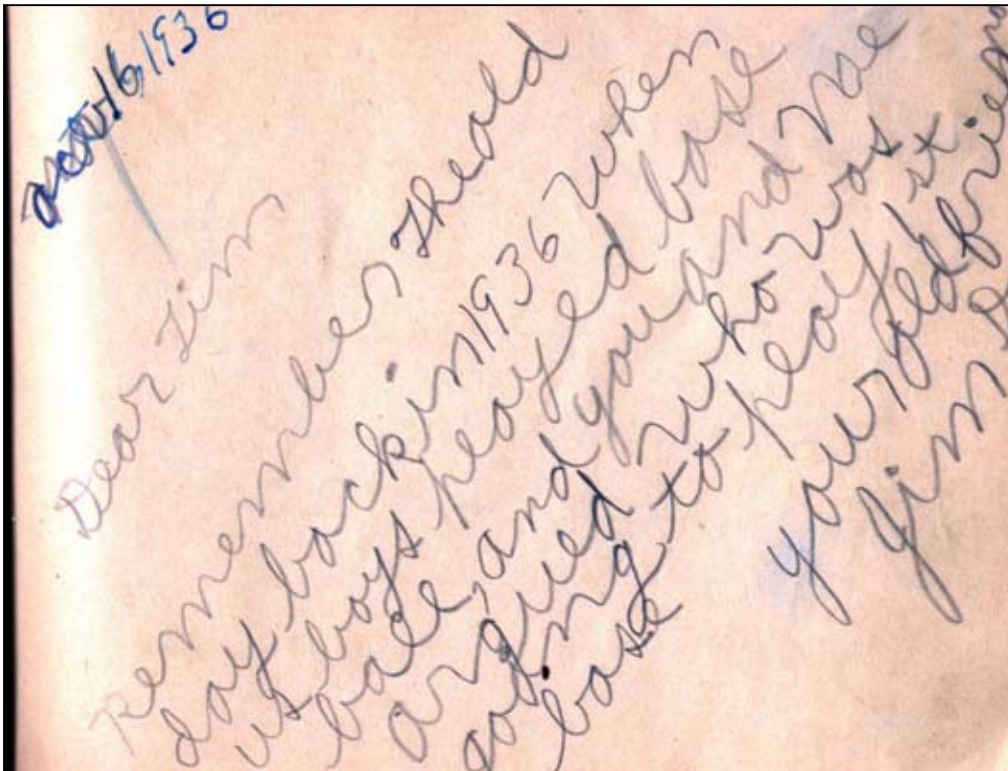 16, 1936
Dear Jim
Remember the old
day back in 1936 when
us boys played base
ball, and you and me
argued who was
going to play 1st
base
your old frien
Jim